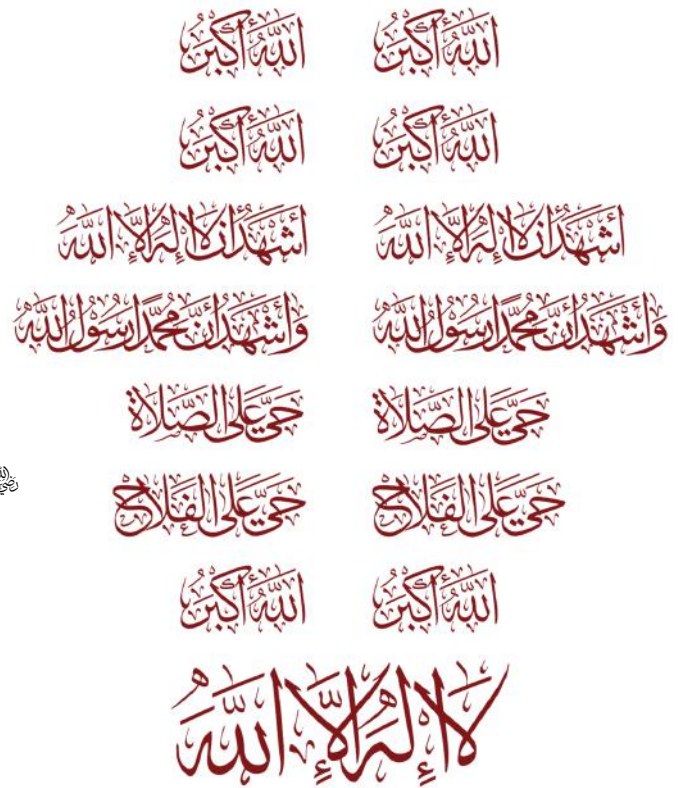 اللَّهُ أَكْبَرُ اللَّهُ أَكْبَرُ
اللَّهُ أَكْبَرُ اللَّهُ أَكْبَرُ
أَشْهَدُ أَنْ لَا إِلٰهَ إِلَّا اللَّهُ أَشْهَدُ أَنْ لَا إِلٰهَ إِلَّا اللَّهُ
وَأَشْهَدُ أَنَّ مُحَمَّدًا رَسُولُ اللَّهِ وَأَشْهَدُ أَنَّ مُحَمَّدًا رَسُولُ اللَّهِ
حَيَّ عَلَى الصَّلَاةِ حَيَّ عَلَى الصَّلَاةِ
حَيَّ عَلَى الْفَلَاحِ حَيَّ عَلَى الْفَلَاحِ
اللَّهُ أَكْبَرُ اللَّهُ أَكْبَرُ
لَا إِلٰهَ إِلَّا اللَّهُ